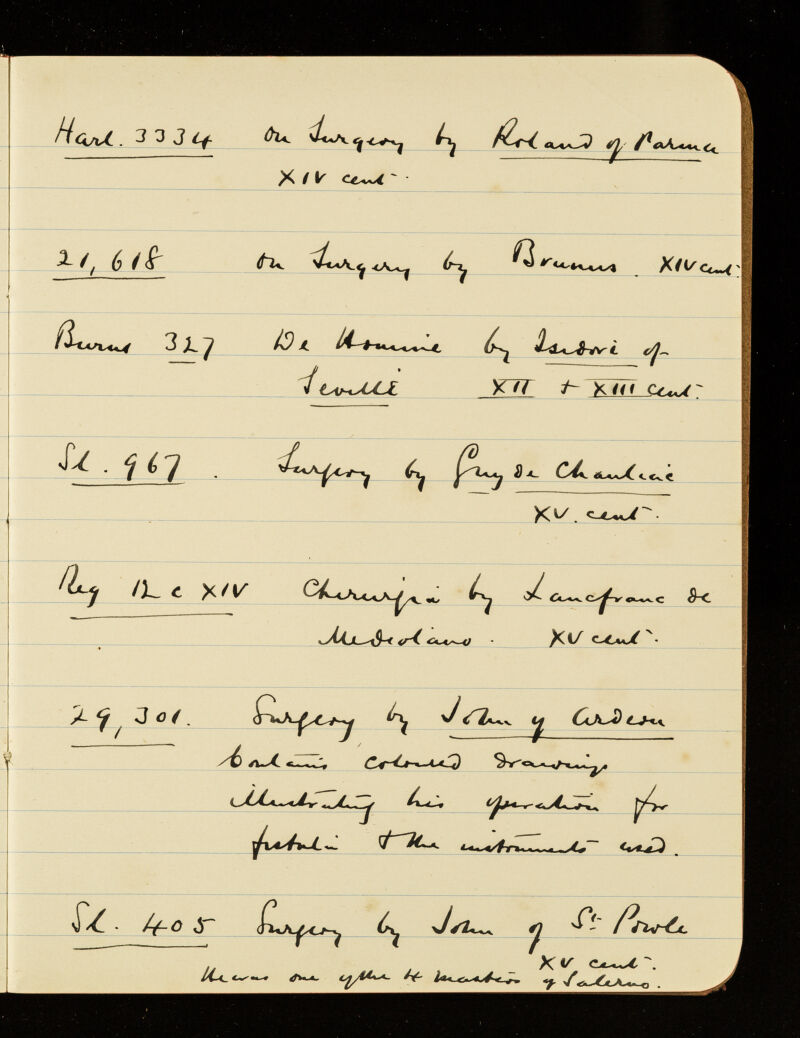 Harl. 3334 on Surgery by Roland of Parma
XIV cent.
21,618 on Surgery by Brunus. XIV cent.
Burns 327 De Homine by Isidore of
Seville XII + XIII cent.
Sl. 967. Surgery by Guy de Chauliac
XV. cent.
Reg 12 c XIV Chirurgia by Lancfranc de
Mediolano. XV cent.
29,301. Surgery by John of Ardern
Contains coloured drawings
illustrating his operation for
fistula + the instruments used.
Sl. 405 Surgery by John of St. Powle
XV cent.
He was one of the 4 masters of Salerno.